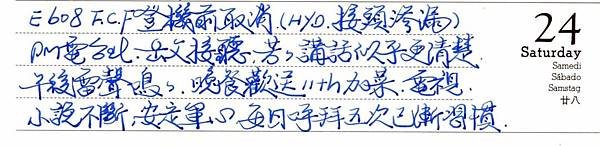 E608 F.C.F 登機前取消 (HYD. 接頭滲漏)
PM電台北. 岳父接聽. 芳々講話似乎更清楚
午後雷聲鳴々. 晚餐歡送11th加菜. 電視.
小說不斷. 安定軍心 每日呼拜五次已漸習慣.
24
Saturday
Samedi
Sábado
Samstag
廿八